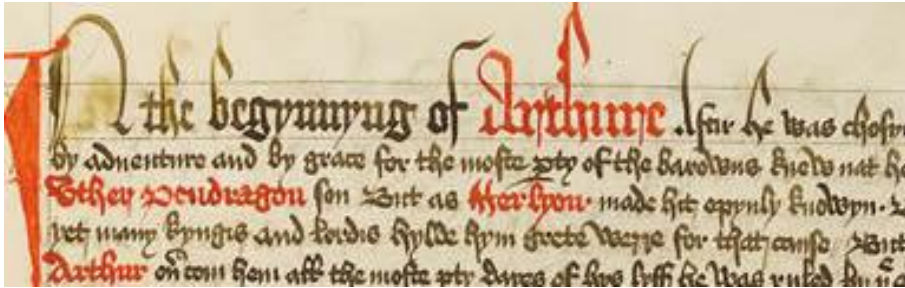 In the begynnyng of Arthure Aftir he was chosyn
by adventure and by grace for the moste pty of the barowns knew nat he
Vther Pendragon son But as Merlyon made hit opynly knowyn.
yet many kyngis and lordis hylde hym grete werre for that cause But
Arthur ou com hem all the moste pty dayes of hys lyff he was ruled by